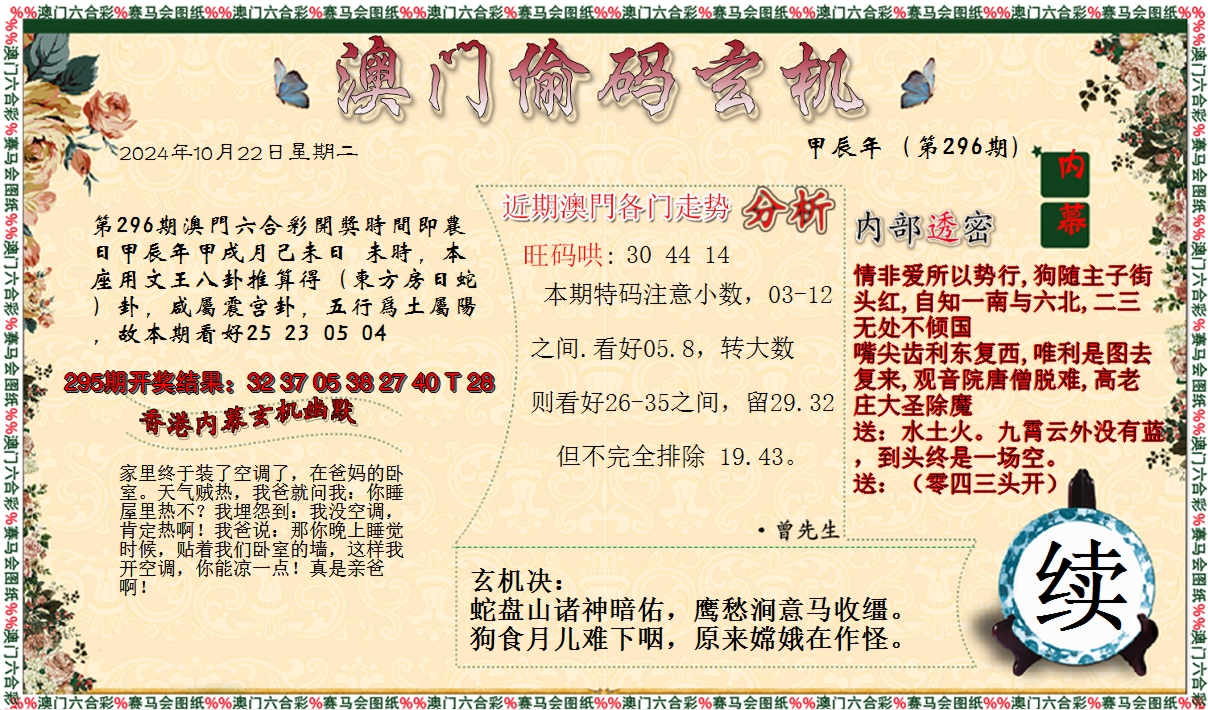 %%澳门六合彩%赛马会图纸%%澳门六合彩%赛马会图纸%%澳门六合彩%赛马会图纸%%澳门六合彩%赛马会图纸%%澳门六合彩%赛马会图纸%%澳门六合彩%赛马会图纸%%
澳门偷码玄机
2024年10月22日星期二
甲辰年（第296期）
内
幕
第296期澳門六合彩開獎時間即農
日甲辰年甲戌月己未日 未時，本
座用文王八卦推算得（東方房日蛇
）卦，咸屬震宫卦，五行爲土屬陽
，故本期看好25 23 05 04
295期开奖结果：32 37 05 38 27 40 T 28
香港内幕玄机幽默
家里终于装了空调了，在爸妈的卧
室。天气贼热，我爸就问我：你睡
屋里热不？我埋怨到：我没空调，
肯定热啊！我爸说：那你晚上睡觉
时候，贴着我们卧室的墙，这样我
开空调，你能凉一点！真是亲爸
啊！
近期澳門各门走势 分析
旺码哄: 30 44 14
本期特码注意小数，03-12
之间.看好05.8，转大数
则看好26-35之间，留29.32
但不完全排除 19.43。
·曾先生
内部透密
情非爱所以势行,狗随主子街
头红,自知一南与六北,二三
无处不倾国
嘴尖齿利东复西,唯利是图去
复来,观音院唐僧脱难,高老
庄大圣除魔
送：水土火。九霄云外没有蓝
，到头终是一场空。
送：（零四三头开）
玄机决：
蛇盘山诸神暗佑，鹰愁涧意马收缰。
狗食月儿难下咽，原来嫦娥在作怪。
续
%%澳门六合彩%赛马会图纸%%澳门六合彩%赛马会图纸%%澳门六合彩%赛马会图纸%%澳门六合彩%赛马会图纸%%澳门六合彩%赛马会图纸%%澳门六合彩%赛马会图纸%%